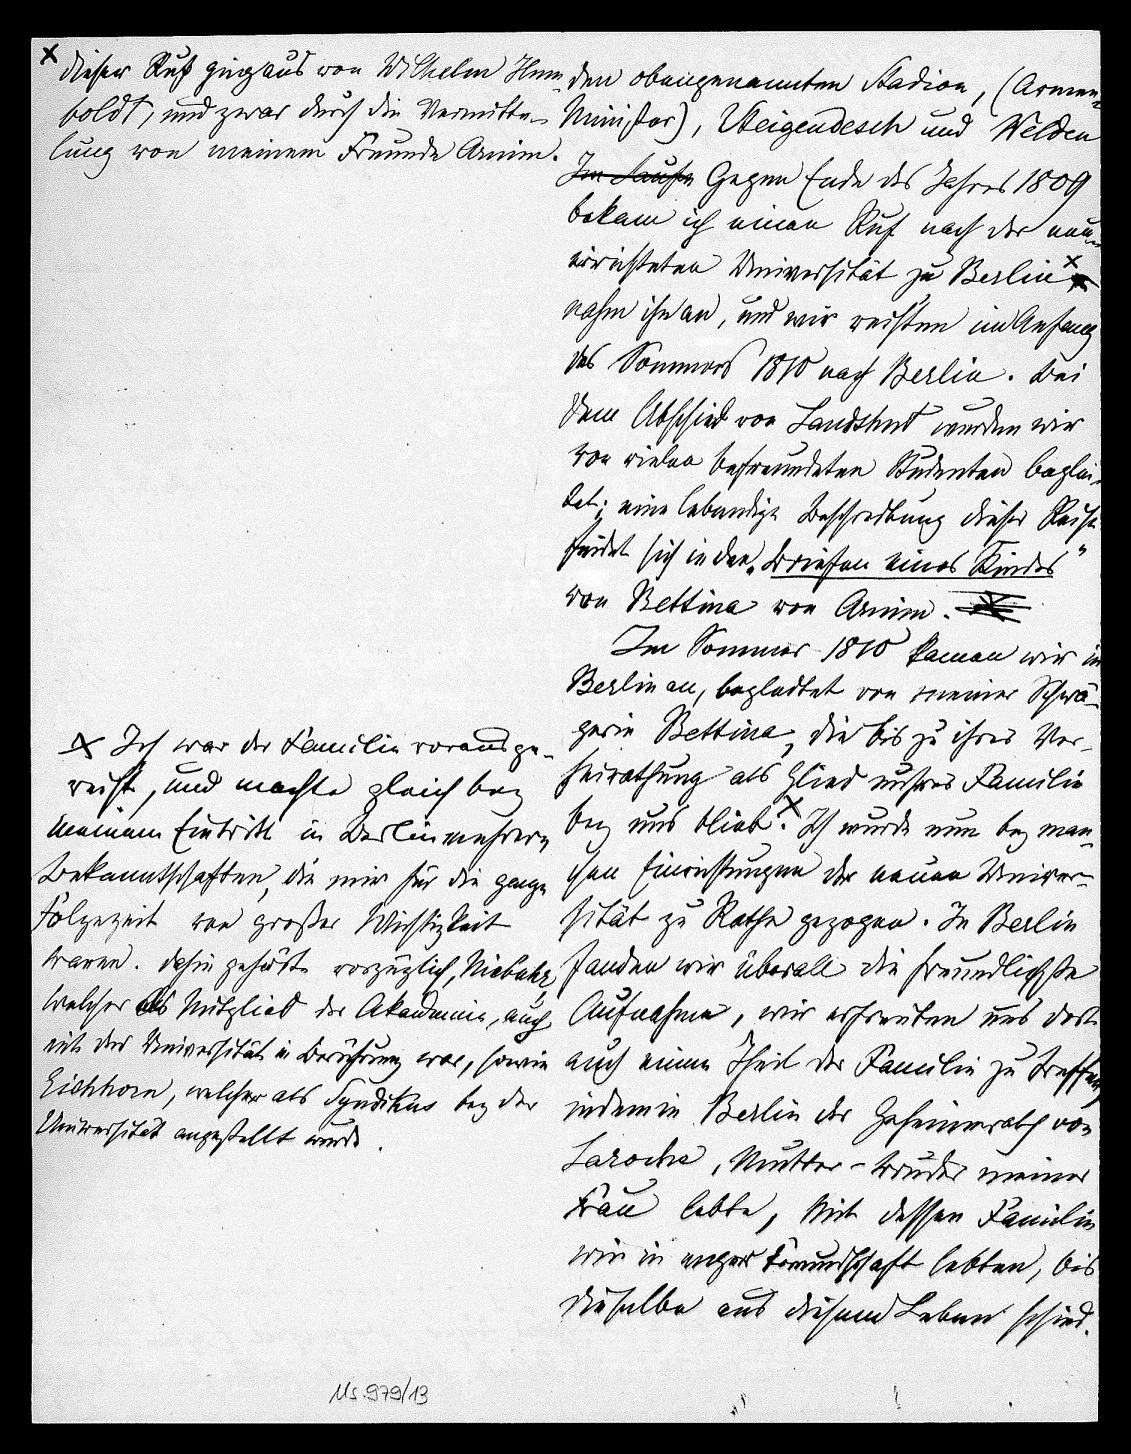 x dieser Ruf ging aus von Wilhelm Hum-
boldt, und zwar durch die Vermitte-
lung von meinem Freunde Arnim.
den obengenannten Stadion, (Armen-
Minister), Steigendesch und Welden
Im Laufe Gegen Ende des Jahres 1809
bekam ich einen Ruf nach der neu-
errichteten Universität zu Berlin x
nahm ihn an, und wir reisten im Anfang
des Sommers 1810 nach Berlin. Bei
dem Abschied von Landshut wurden wir
von vielen befreundeten Studenten beglei-
tet; eine lebendige Beschreibung dieser Reise
findet sich in den „Briefen eines Kindes"
von Bettina von Arnim.
Im Sommer 1810 kamen wir in
Berlin an, begleitet von meiner Schwä-
gerin Bettina, die bis zu ihrer Ver-
heirathung als Glied unsrer Familie
bey uns blieb. x Ich wurde nun bey man-
chen Einrichtungen der neuen Univer-
sität zu Rathe gezogen. In Berlin
fanden wir überall die freundlichste
Aufnahme, wir erfreuten uns dort
auch einen Theil der Familie zu treffen,
indem in Berlin der Geheimerath von
Laroche, Mutter-Bruder meiner
Frau lebte, mit dessen Familie
wir in enger Freundschaft lebten, bis
dieselbe aus diesem Leben schied.
x Ich war der Familie vorausge-
reist, und machte gleich bey
meinem Eintritt in Berlin mehrere
Bekanntschaften, die mir für die ganze
Folgezeit von großer Wichtigkeit
waren. Dahin gehörte vorzüglich, Niebuhr,
welcher als Mitglied der Akademie, auch
mit der Universität in Berührung war, sowie
Eichhorn, welcher als Syndikus bey der
Universität angestellt wurde.
Ms. 979/13